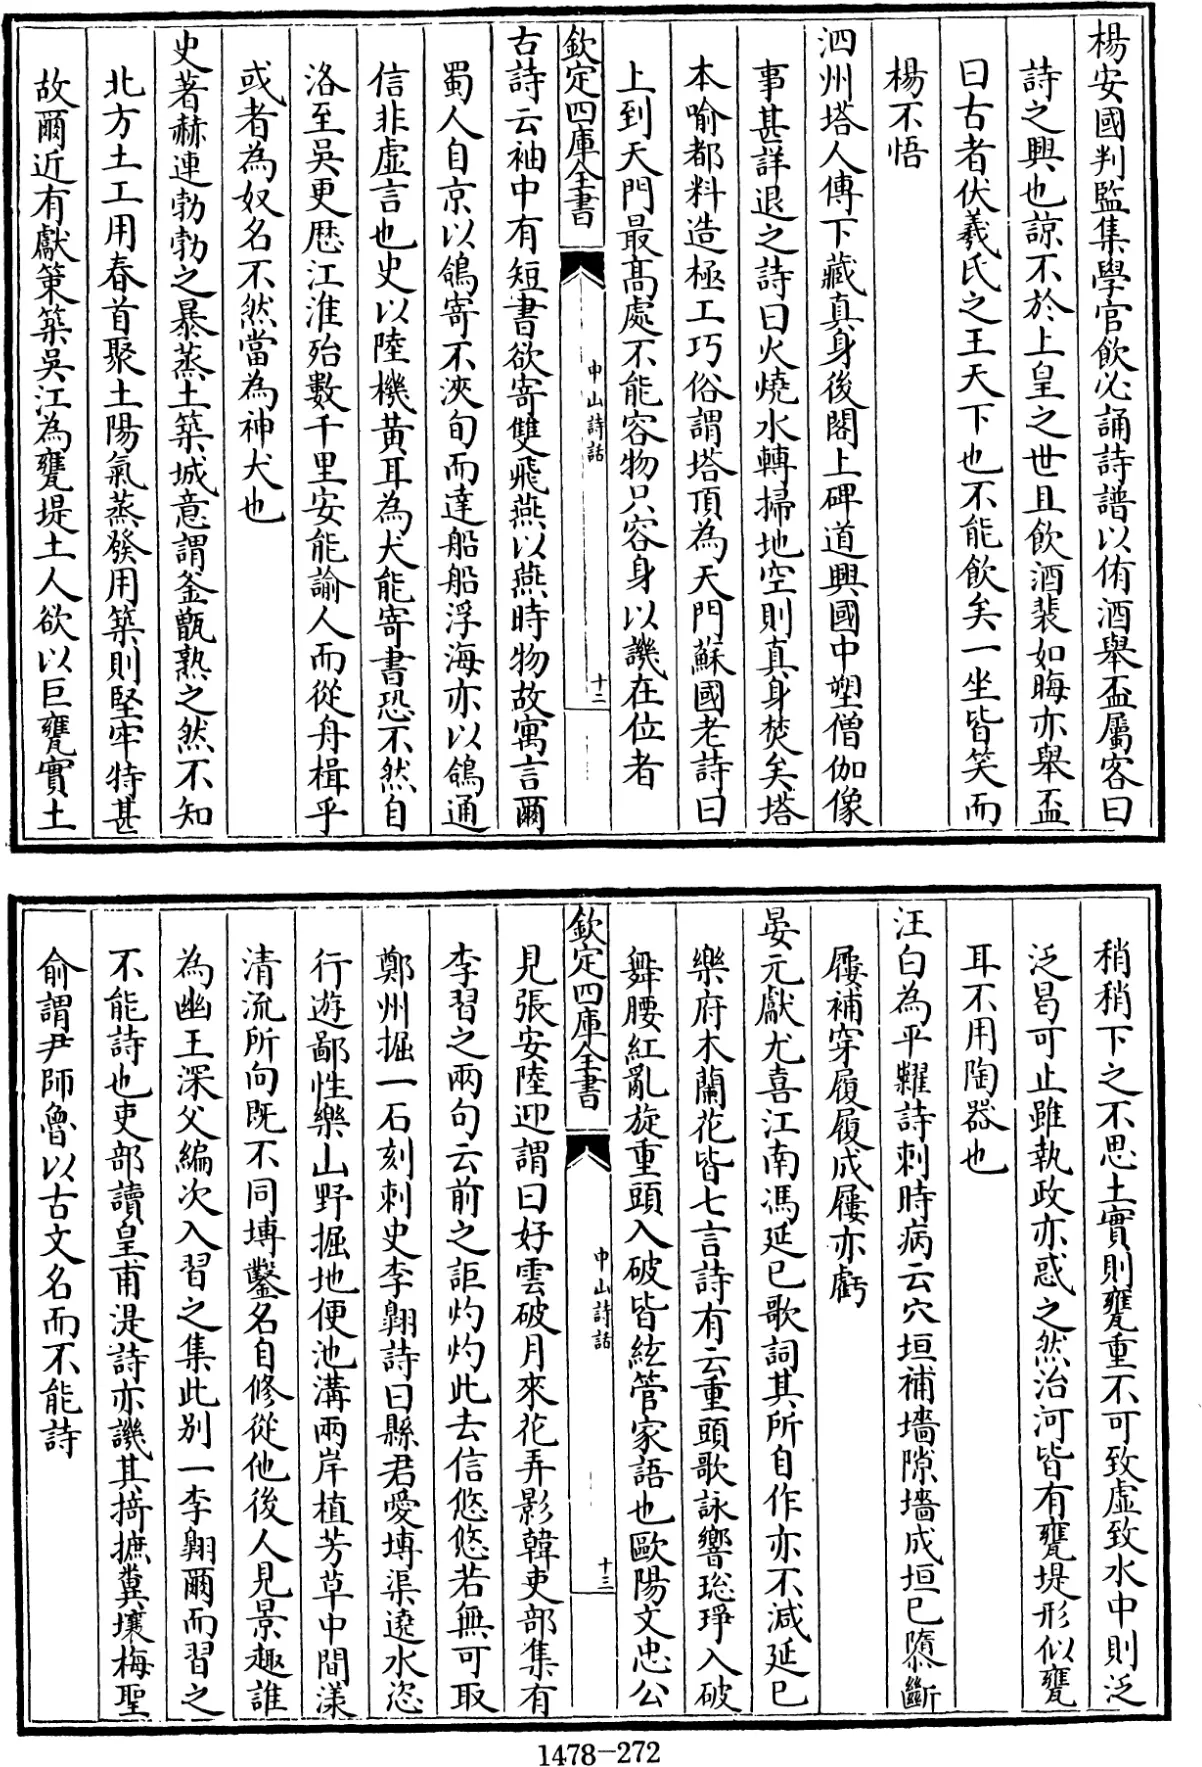 楊安國判監集學官飲必誦詩譜以侑酒舉盃屬客曰
詩之興也諒不於上皇之世且飲酒裴如晦亦舉盃
曰古者伏羲氏之王天下也不能飲矣一坐皆笑而
楊不悟
泗州塔人傳下藏真身後閣上碑道興國中塑僧伽像
事甚詳退之詩曰火燒水轉掃地空則真身焚矣塔
本喻都料造極工巧俗謂塔頂為天門蘇國老詩曰
上到天門最高處不能容物只容身以譏在位者
欽定四庫全書
中山詩話
十二
古詩云袖中有短書欲寄雙飛燕以燕時物故寓言爾
蜀人自京以鴿寄不浹旬而達船船浮海亦以鴿通
信非虛言也史以陸機黃耳為犬能寄書恐不然自
洛至吳更歷江淮殆數千里安能諭人而從舟楫乎
或者為奴名不然當為神犬也
史著赫連勃勃之暴蒸土築城意謂釜甑熟之然不知
北方土工用春首聚土陽氣蒸發用築則堅牢特甚
故爾近有獻策築吳江為甕堤土人欲以巨甕實土
稍稍下之不思土實則甕重不可致虛致水中則泛
泛曷可止雖執政亦惑之然治河皆有甕堤形似甕
耳不用陶器也
汪白為平糶詩刺時病云穴垣補墻隙墻成垣已隳斷
屨補穿履履成屨亦虧
晏元獻尤喜江南馮延巳歌詞其所自作亦不減延巳
樂府木蘭花皆七言詩有云重頭歌詠響璁琤入破
舞腰紅亂旋重頭入破皆絃管家語也歐陽文忠公
欽定四庫全書
中山詩話
十三
見張安陸迎謂曰好雲破月來花弄影韓吏部集有
李習之兩句云前之詎灼灼此去信悠悠若無可取
鄭州掘一石刻刺史李翺詩曰縣君愛塼渠遶水恣
行遊鄙性樂山野掘地便池溝兩岸植芳草中間漾
清流所向既不同塼鑿名自修從他後人見景趣誰
為幽王深父編次入習之集此別一李翺爾而習之
不能詩也吏部讀皇甫湜詩亦譏其掎摭糞壤梅聖
俞謂尹師魯以古文名而不能詩
1478-272